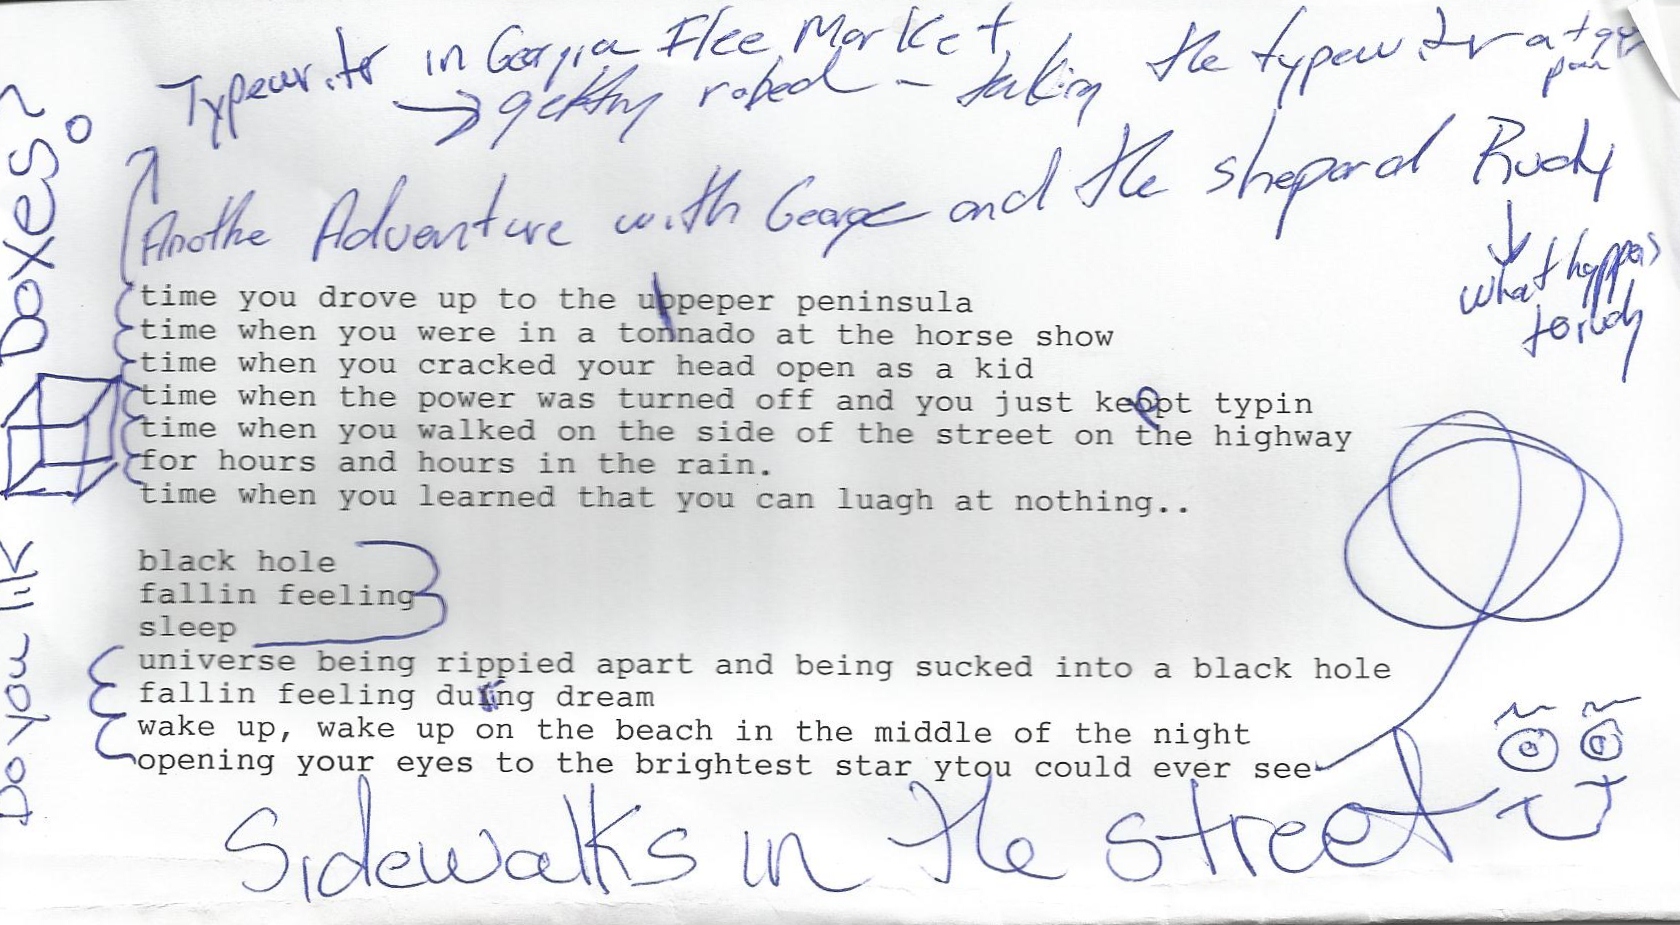 Typewriter in Georgia Flee Market
→ getting robed - taking the typewriter at gun
Another Adventure with George and the sheparad Rudy
↓
what happens
to rudy
time you drove up to the uppeper peninsula
time when you were in a tonnado at the horse show
time when you cracked your head open as a kid
time when the power was turned off and you just keppt typin
time when you walked on the side of the street on the highway
for hours and hours in the rain.
time when you learned that you can luagh at nothing..
black hole
fallin feeling
sleep
universe being rippied apart and being sucked into a black hole
fallin feeling during dream
wake up, wake up on the beach in the middle of the night
opening your eyes to the brightest star ytou could ever see
Sidewalks in the street
Do you lik Boxes?